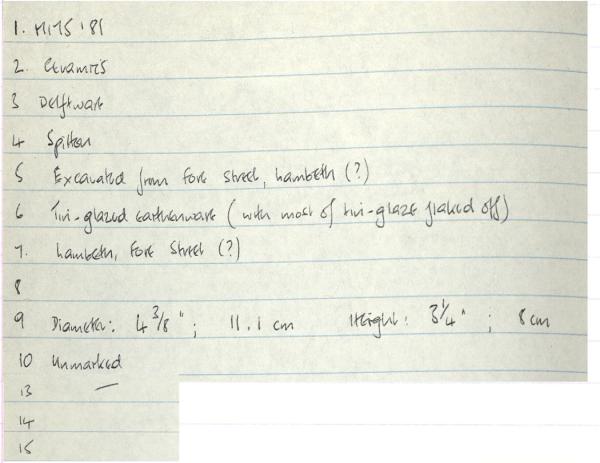 1. M175'81
2. Ceramics
3 Delftware
4 Spittoon
5 Excavated from Fore Street, Lambeth (?)
6 Tin-glazed earthenware (with most of tin-glaze flaked off)
7. Lambeth, Fore Street (?)
8
9 Diameter: 4 3/8"; 11.1 cm Height: 3 1/4"; 8 cm
10 Unmarked
13 —
14
15